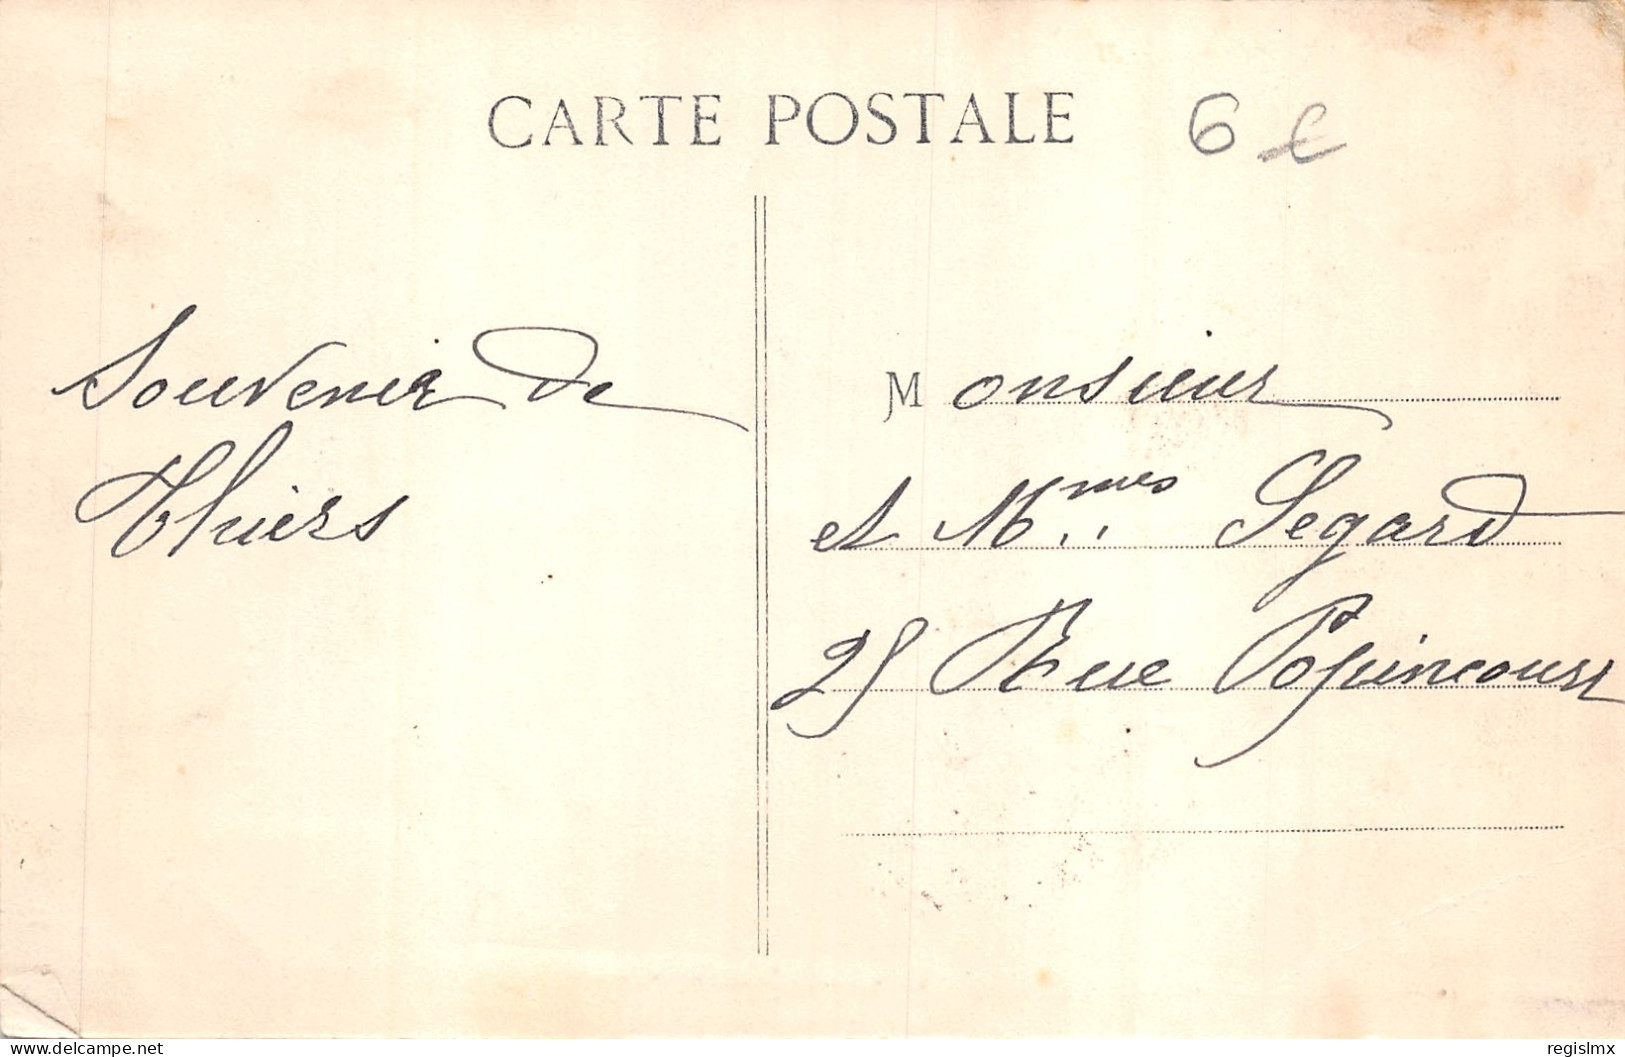 CARTE POSTALE
6 €
Souvenir de
Thiers
Monsieur
et Mmes Segard
25 Rue Popincourt
www.delcampe.net
regislmx